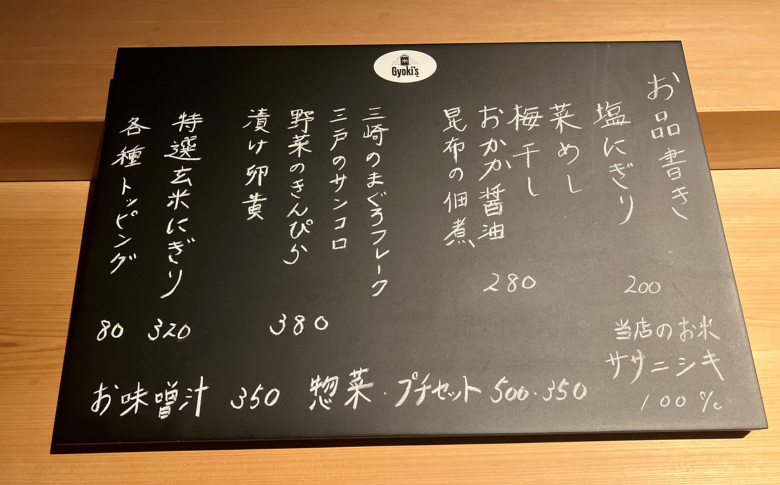 Gyoki's
お品書き
塩にぎり
200
菜めし
梅干し
おかか醤油
昆布の佃煮
280
三崎のまぐろフレーク
三戸のサンコロ
野菜のきんぴら
漬け卵黄
380
特選玄米にぎり
320
各種トッピング
80
当店のお米
ササニシキ
100%
お味噌汁 350 惣菜・プチセット 500・350